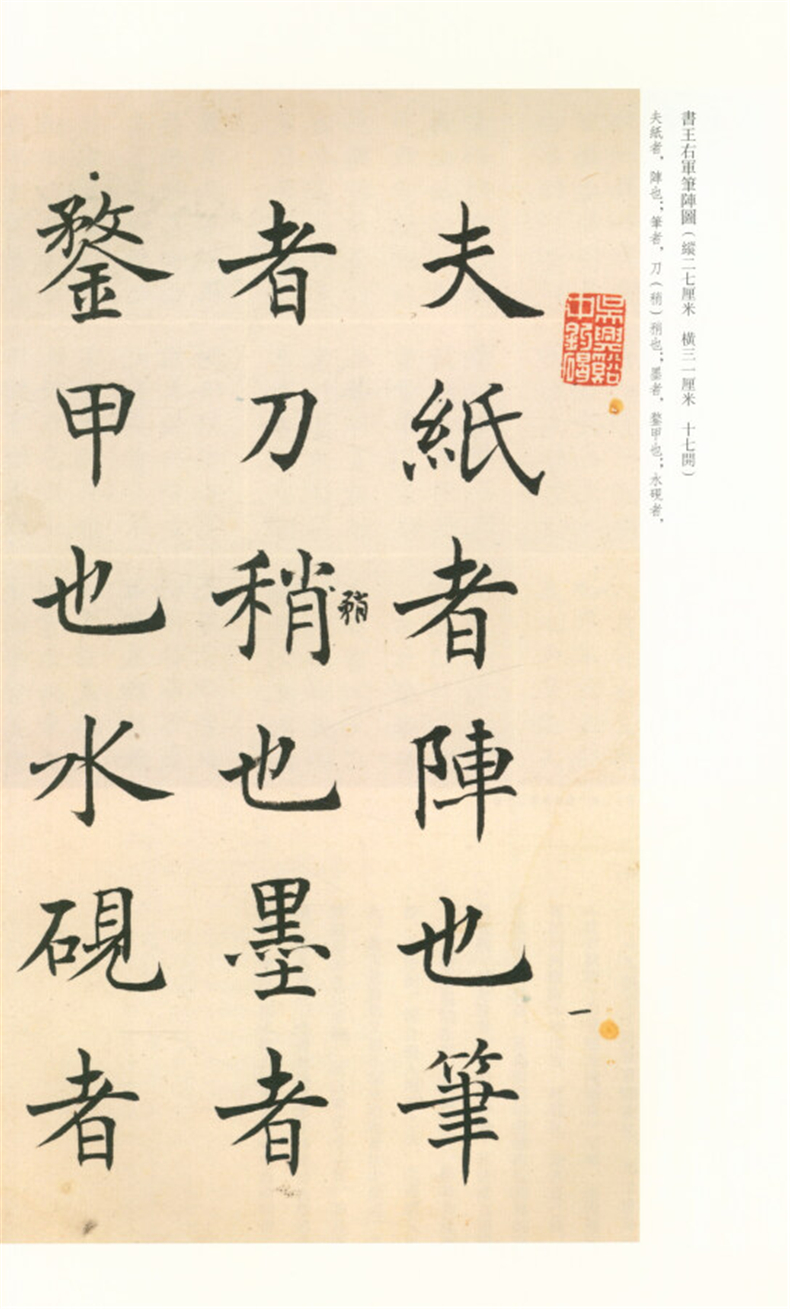 書王右軍筆陣圖（縱二七厘米　橫三一厘米　十七開）
夫紙者，陣也；筆者，刀（稍）矟也；墨者，鍪甲也；水硯者，
夫紙者陣也筆
一
者刀稍也墨者
矟
鍪甲也水硯者